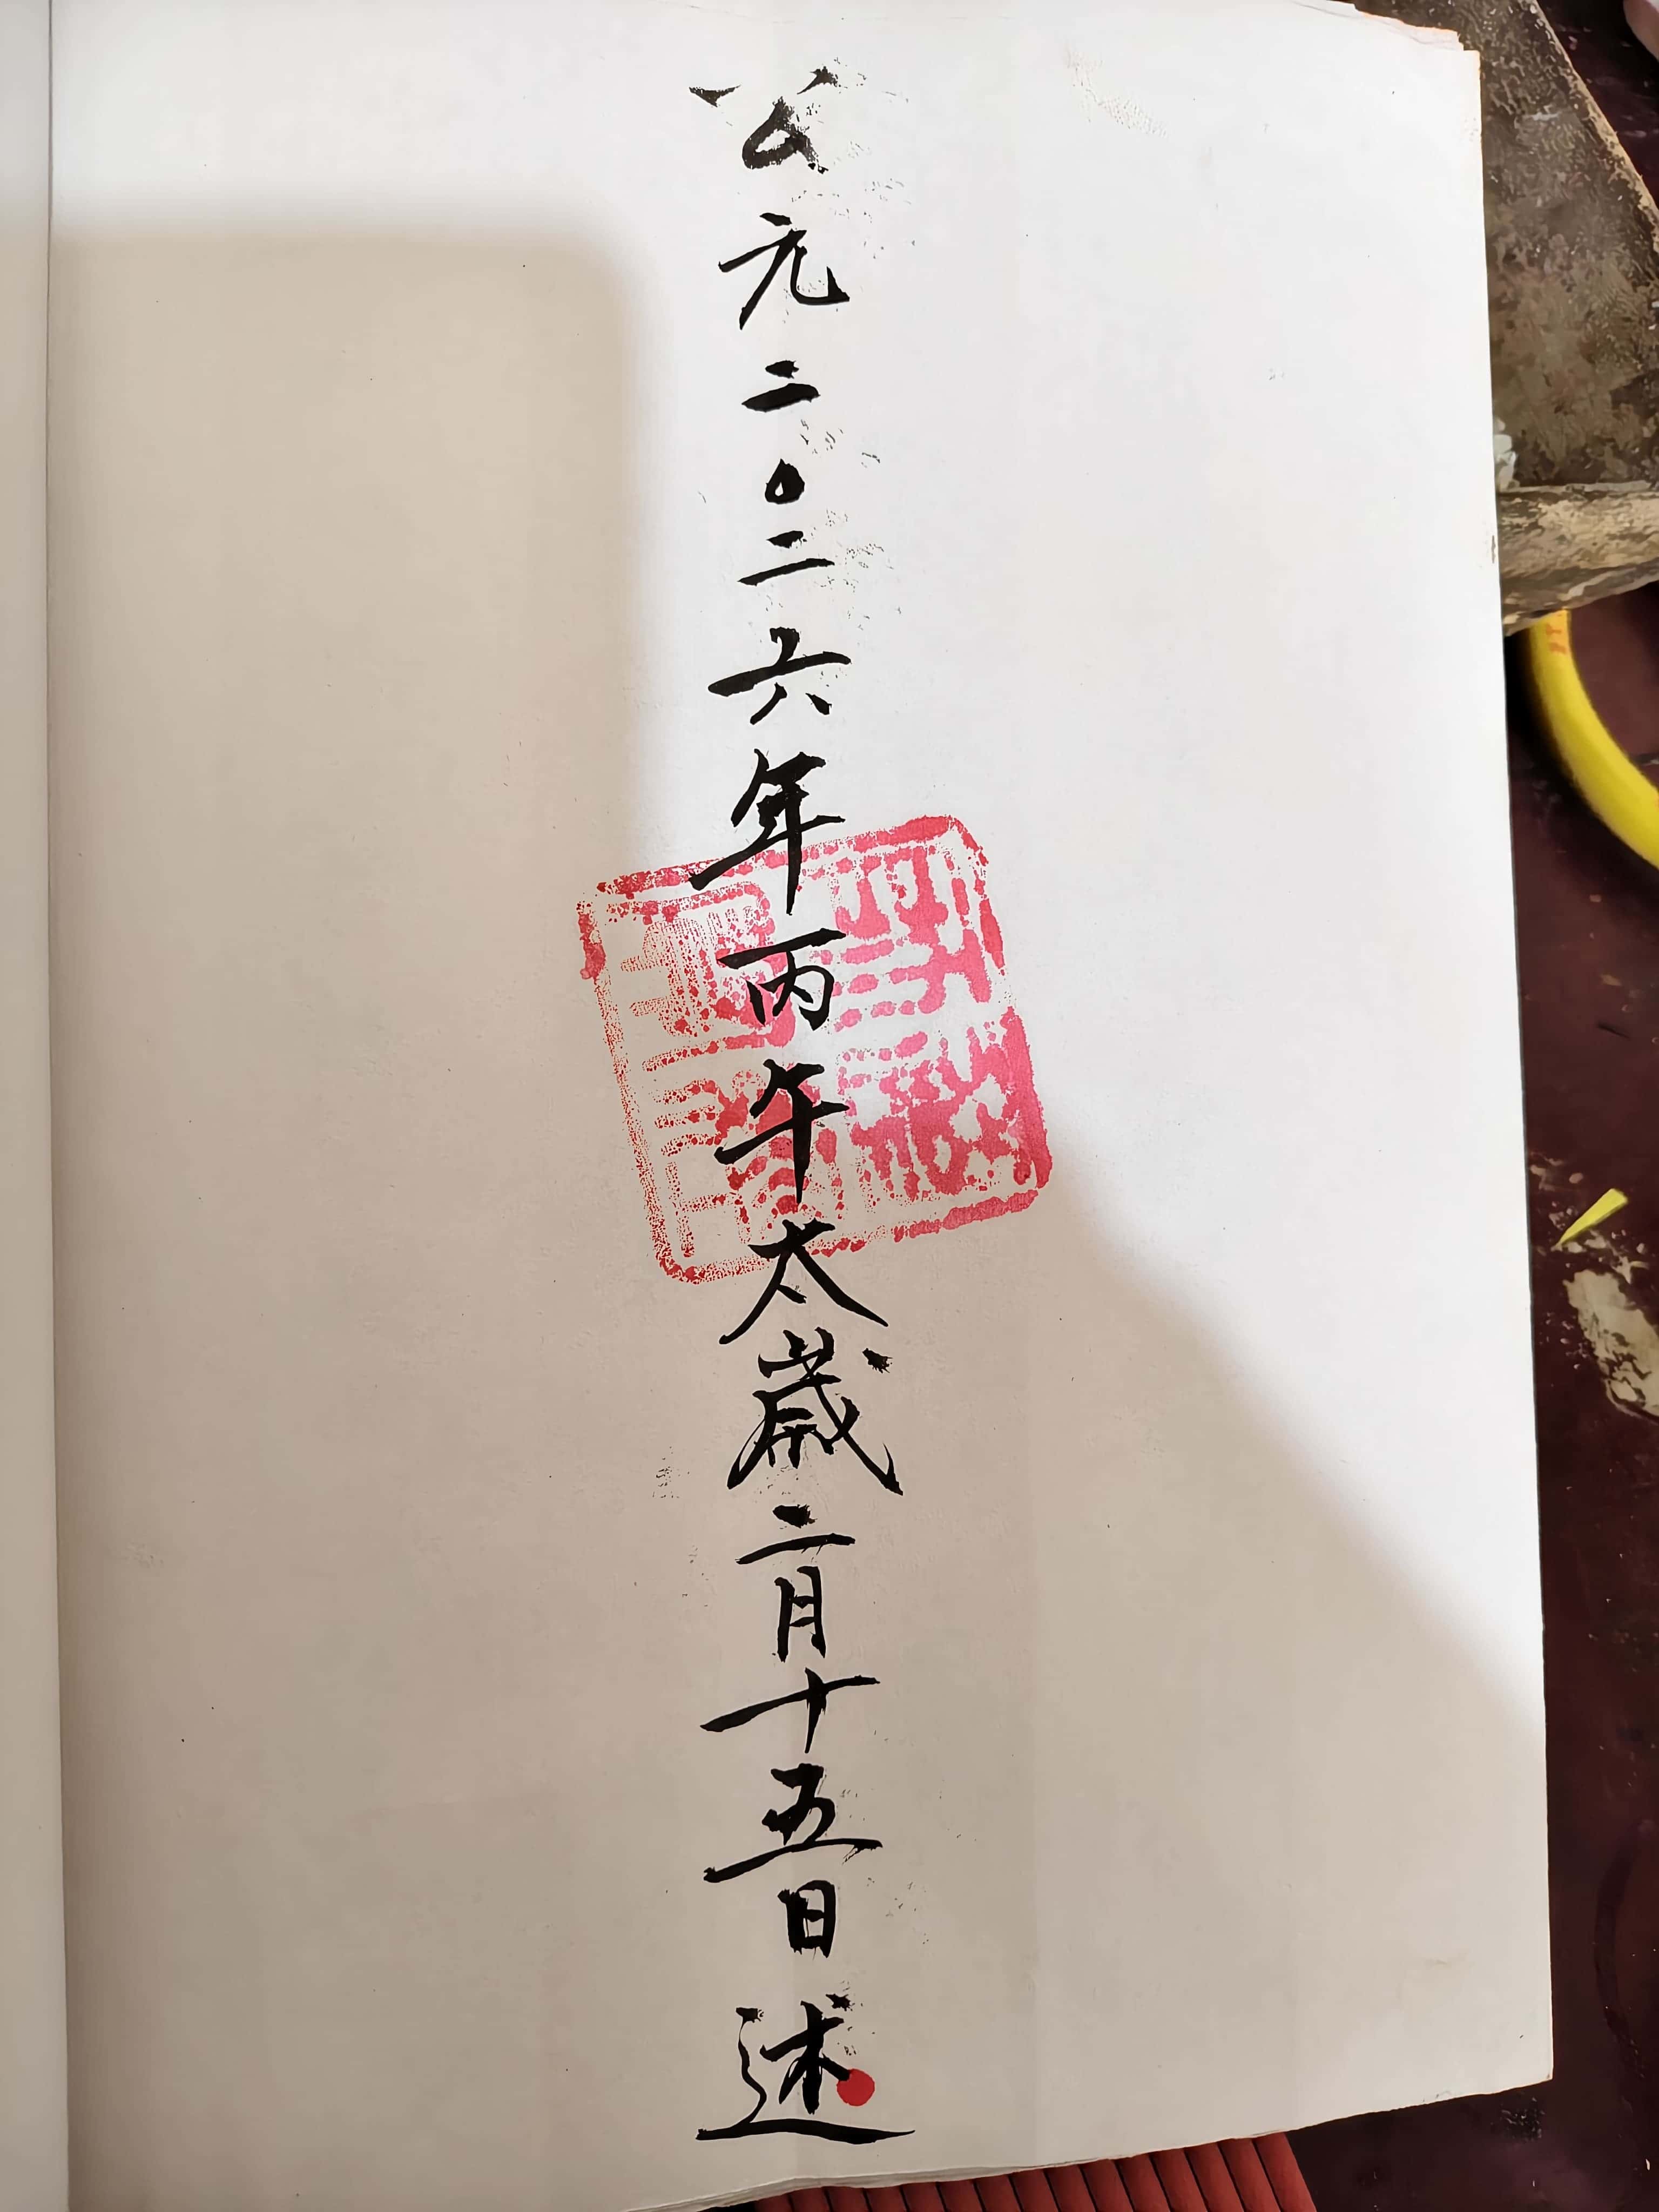 公元二〇二六年丙午太歲二月十五日述